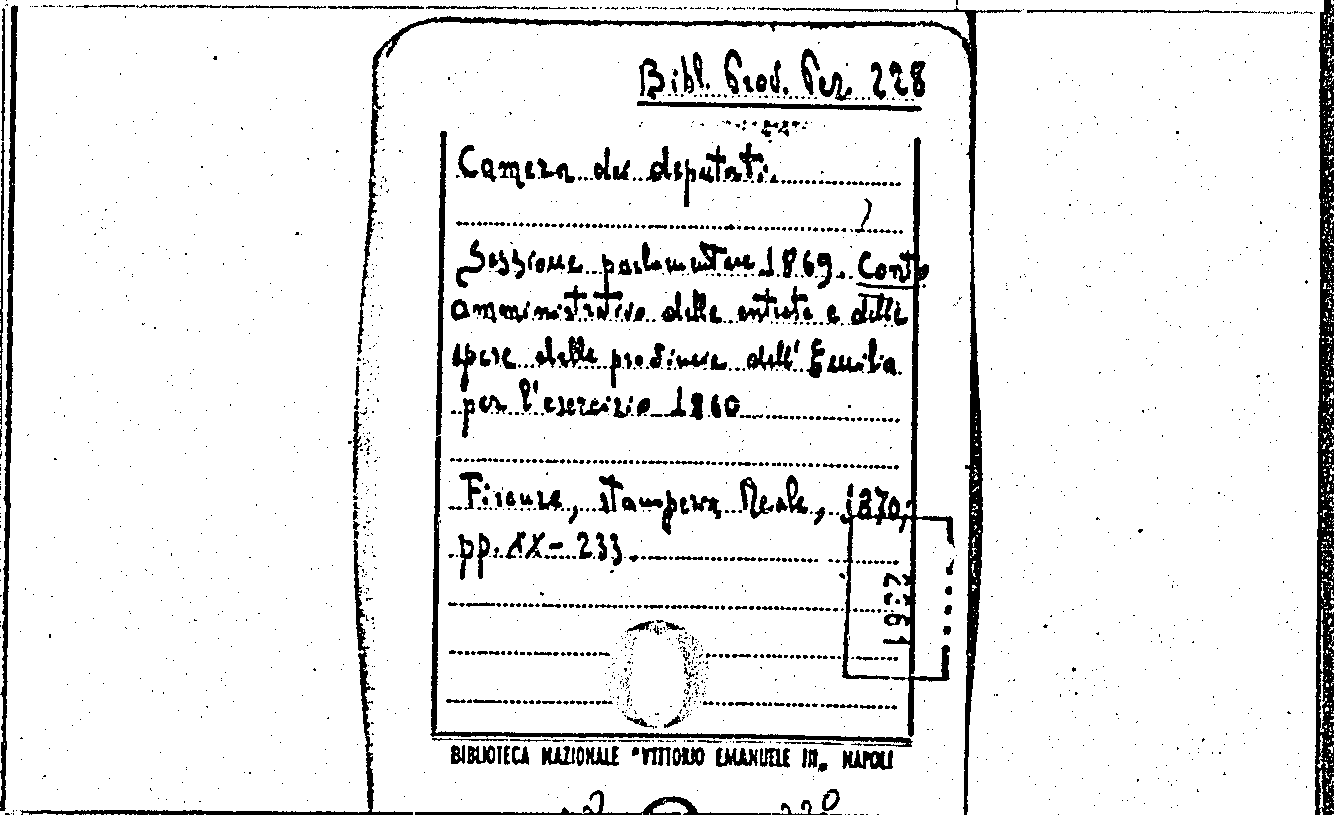 Bibl. Prov. Per. 228
Camera dei deputati.
Sessione parlamentare 1869. Conto
amministrativo delle entrate e delle
spese delle provincie dell'Emilia
per l'esercizio 1860
Firenze, stamperia Reale, 1870,
pp. XX-233.
BIBLIOTECA NAZIONALE "VITTORIO EMANUELE III„ NAPOLI